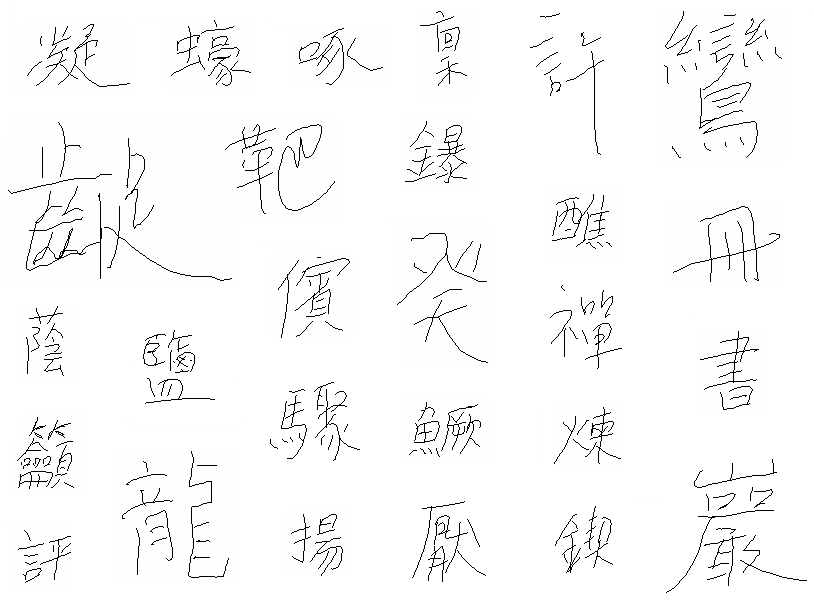 凝 蠔 啄 稟 許 鸞
齪 靶 鑤 醮 冊
儐 癸 禪
蔭 鹽 書
籲 驟 鱖 煉
龍 巖
評 揚 厭 鍥